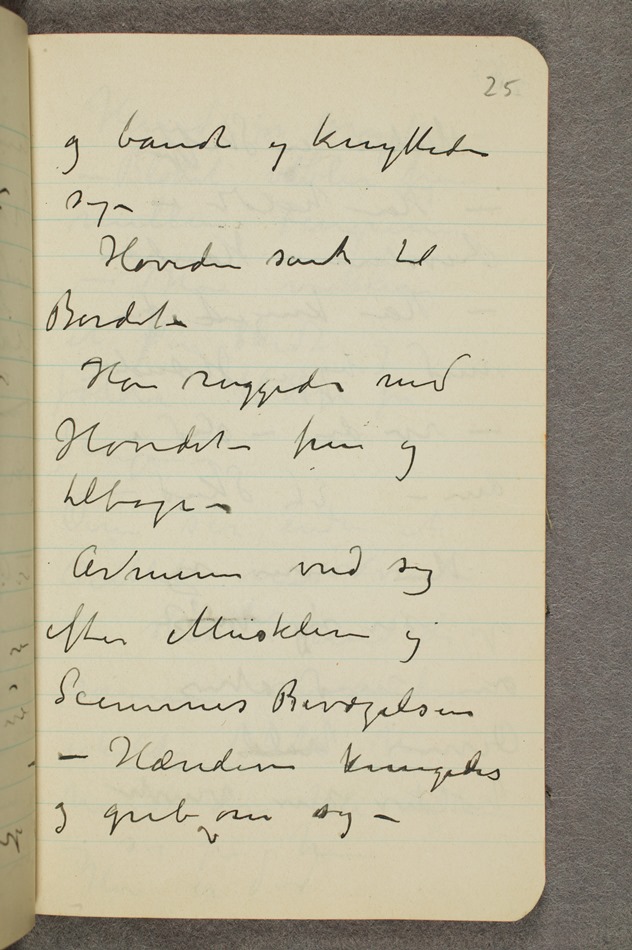 25
og bandt og knyttede
sig –
Hovedet sank til
Bordet –
Han ruggede med
Hovedet – frem og
tilbage –
Armene vred sig
efter Musklerne og
Senernes Bevægelser
– Hænderne
og greb om sig –